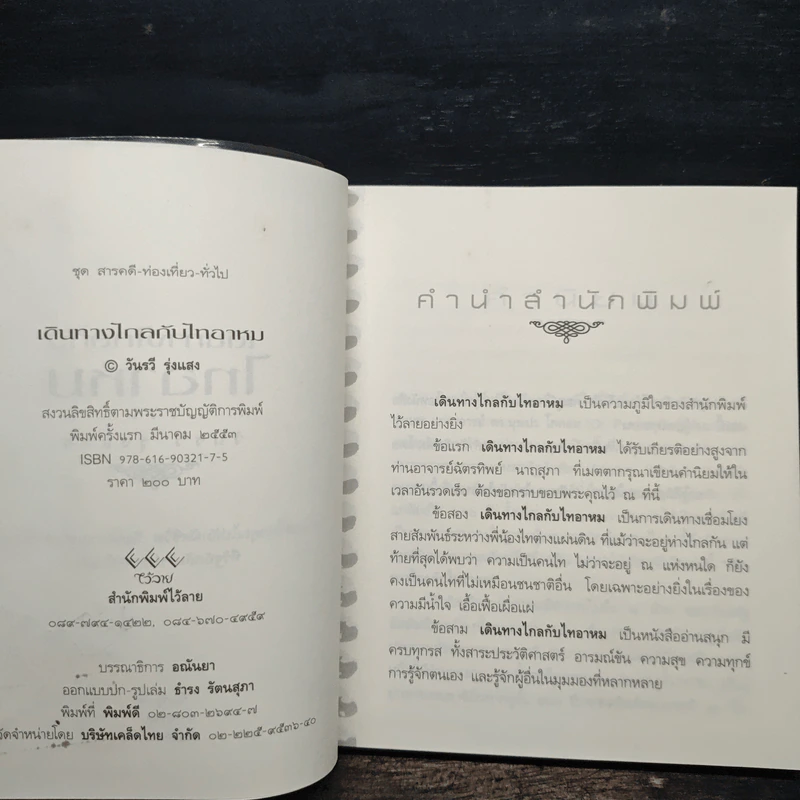 ชุด สารคดี-ท่องเที่ยว-ทั่วไป
เดินทางไกลกับไทอาหม
© วันรวี รุ่งแสง
สงวนลิขสิทธิ์ตามพระราชบัญญัติการพิมพ์
พิมพ์ครั้งแรก มีนาคม ๒๕๕๓
ISBN 978-616-90321-7-5
ราคา ๒๐๐ บาท
ไว้ลาย
สำนักพิมพ์ไว้ลาย
๐๘๙-๗๙๔-๑๔๒๒, ๐๘๔-๖๗๐-๔๙๕๙
บรรณาธิการ อณันยา
ออกแบบปก-รูปเล่ม ธำรง รัตนสุภา
พิมพ์ที่ พิมพ์ดี ๐๒-๘๐๓-๒๖๙๔-๗
จัดจำหน่ายโดย บริษัทเคล็ดไทย จำกัด ๐๒-๒๒๕-๙๕๓๖-๔๐
คำนำสำนักพิมพ์
เดินทางไกลกับไทอาหม เป็นความภูมิใจของสำนักพิมพ์
ไว้ลายอย่างยิ่ง
ข้อแรก เดินทางไกลกับไทอาหม ได้รับเกียรติอย่างสูงจาก
ท่านอาจารย์ฉัตรทิพย์ นาถสุภา ที่เมตตากรุณาเขียนคำนิยมให้ใน
เวลาอันรวดเร็ว ต้องขอกราบขอบพระคุณไว้ ณ ที่นี้
ข้อสอง เดินทางไกลกับไทอาหม เป็นการเดินทางเชื่อมโยง
สายสัมพันธ์ระหว่างพี่น้องไทต่างแผ่นดิน ที่แม้ว่าจะอยู่ห่างไกลกัน แต่
ท้ายที่สุดได้พบว่า ความเป็นคนไท ไม่ว่าจะอยู่ ณ แห่งหนใด ก็ยัง
คงเป็นคนไทที่ไม่เหมือนชนชาติอื่น โดยเฉพาะอย่างยิ่งในเรื่องของ
ความมีน้ำใจ เอื้อเฟื้อเผื่อแผ่
ข้อสาม เดินทางไกลกับไทอาหม เป็นหนังสืออ่านสนุก มี
ครบทุกรส ทั้งสาระประวัติศาสตร์ อารมณ์ขัน ความสุข ความทุกข์
การรู้จักตนเอง และรู้จักผู้อื่นในมุมมองที่หลากหลาย